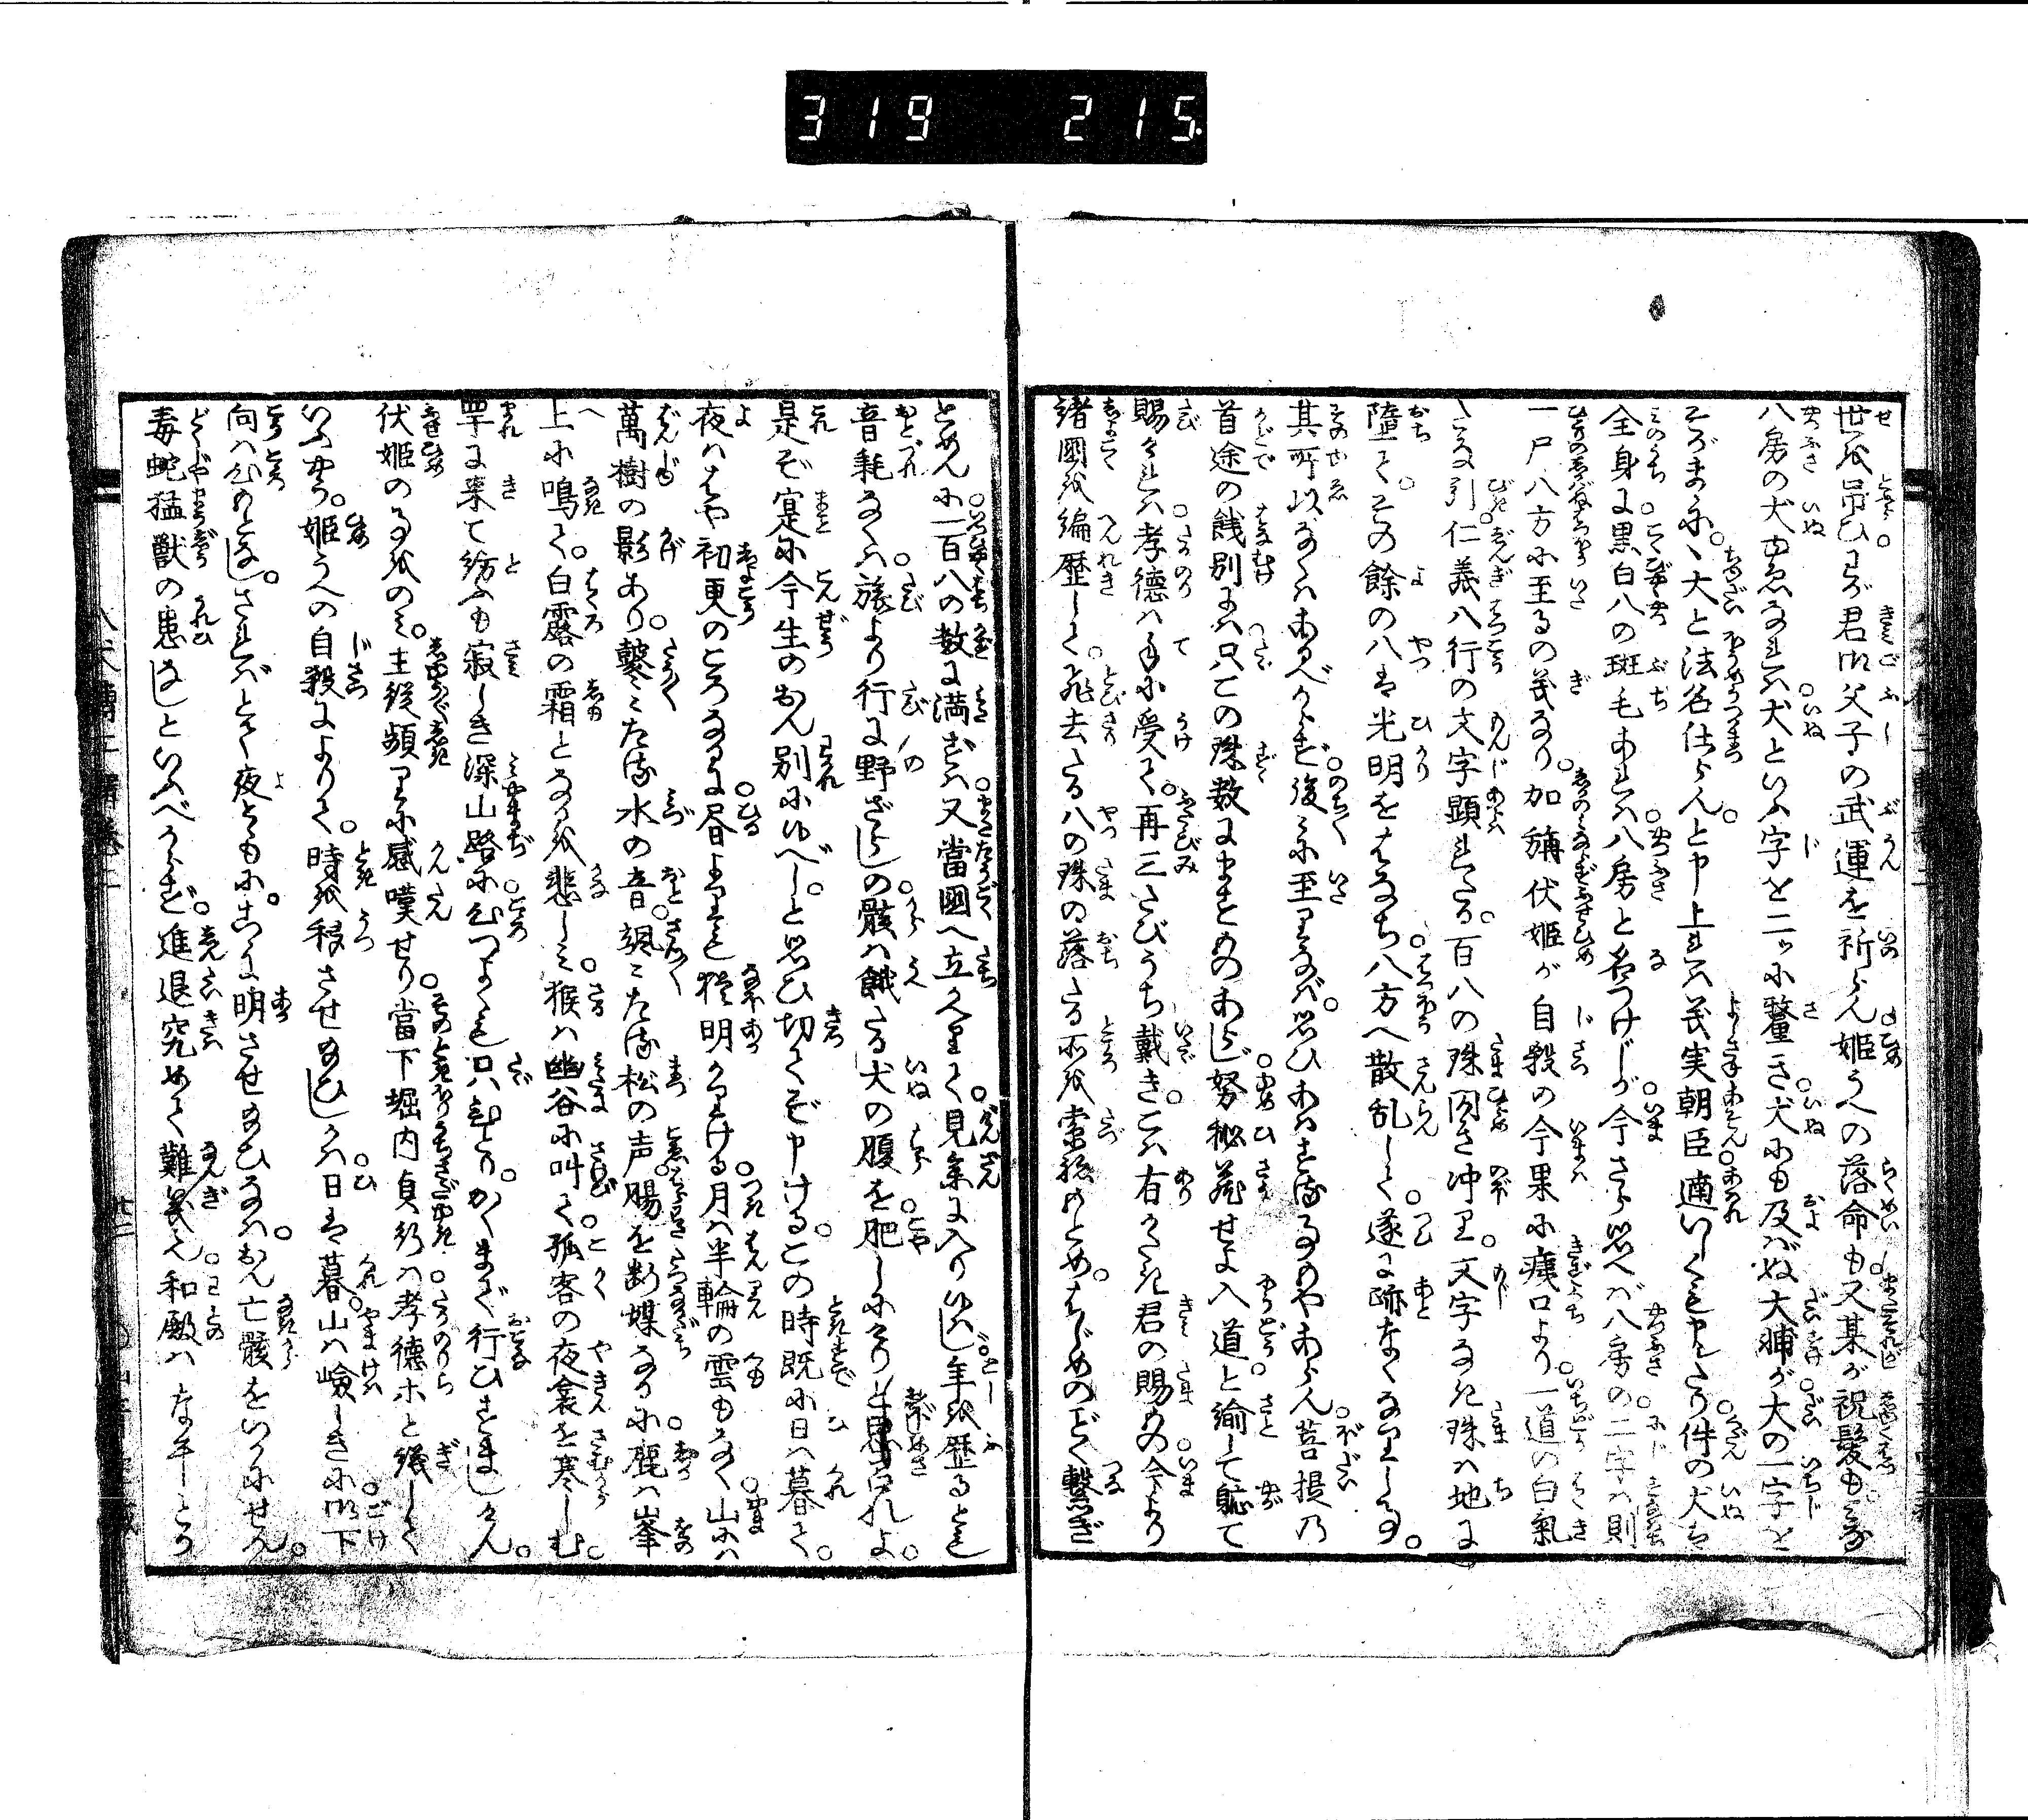 319 215
世を吊ひわが君御父子の武運を祈らん姫うへの落命も又某が祝髪もみな
八房の犬ゆゑなれは犬といふ字を二ッに釐き犬にも及ばぬ大輔が大の一字を
そがまゝに、大と法名仕らん。と申上れは義実朝臣適いしくも申たり件の犬は
全身に黒白八の斑毛あれは八房と名つけしが今さら思へば八房の二字は則
一尸八方に至るの義なり。加旃伏姫が自殺の今果に痍口より一道の白氣
たな引仁義八行の文字顕れたる。百八の珠閃き冲り文字なき珠は地に
墮て。その餘の八は光明をはなち八方へ散乱して遂に跡なくなりし事。
其所以なくはあるべからず後々に至りなば。思ひあはする事もやあらん菩提乃
首途の餞別には只この珠数にますものあらじ努秘蔵せよ入道と諭して軈て
賜りけれは孝徳は手に受て。再三たびうち戴き。こは有がたき君の賜もの今より
諸國を編歴して。飛去たる八の珠の落たる所を索ねもとめ。はじめのごとく繋ぎ
とめんに一百八の数に満ずは又當國へ立かへりて。見參に入り候はじ年を歴るとも
音耗なくは旅より行に野ざらしの骸は餓たる犬の腹を肥しにけりと思召れよ。
是ぞ寔に今生のおん別に候べし。と思ひ切てぞ申ける。この時既に日は暮て。
夜ははや初更のころなるに昼よりも猶明かりける月は半輪の雲もなく山には
萬樹の影あり。鼕々たる水の音。颯々たる松の声。腸を断媒なるに鹿は峯
上に鳴て。白露の霜となるを悲しみ。猴は幽谷に叫て孤客の夜衾を寒しむ。
罕に來て紡ふも寂しき深山路に心つよくも只ひとり。かくまで行ひすましけん。
伏姫の事をのみ。主從頻りに感嘆せり。當下堀内貞行は孝徳ホと議して
いふやう。姫うへの自殺によりて。時を移させ給ひしかは日は暮。山は嶮しきに御下
向は心もとなし。さればとて夜とゝもに。こゝに明させ給ひなは。おん亡骸をいかにせん。
毒蛇猛獣の患なしといふべからず。進退究めて難義也和殿はなにとか